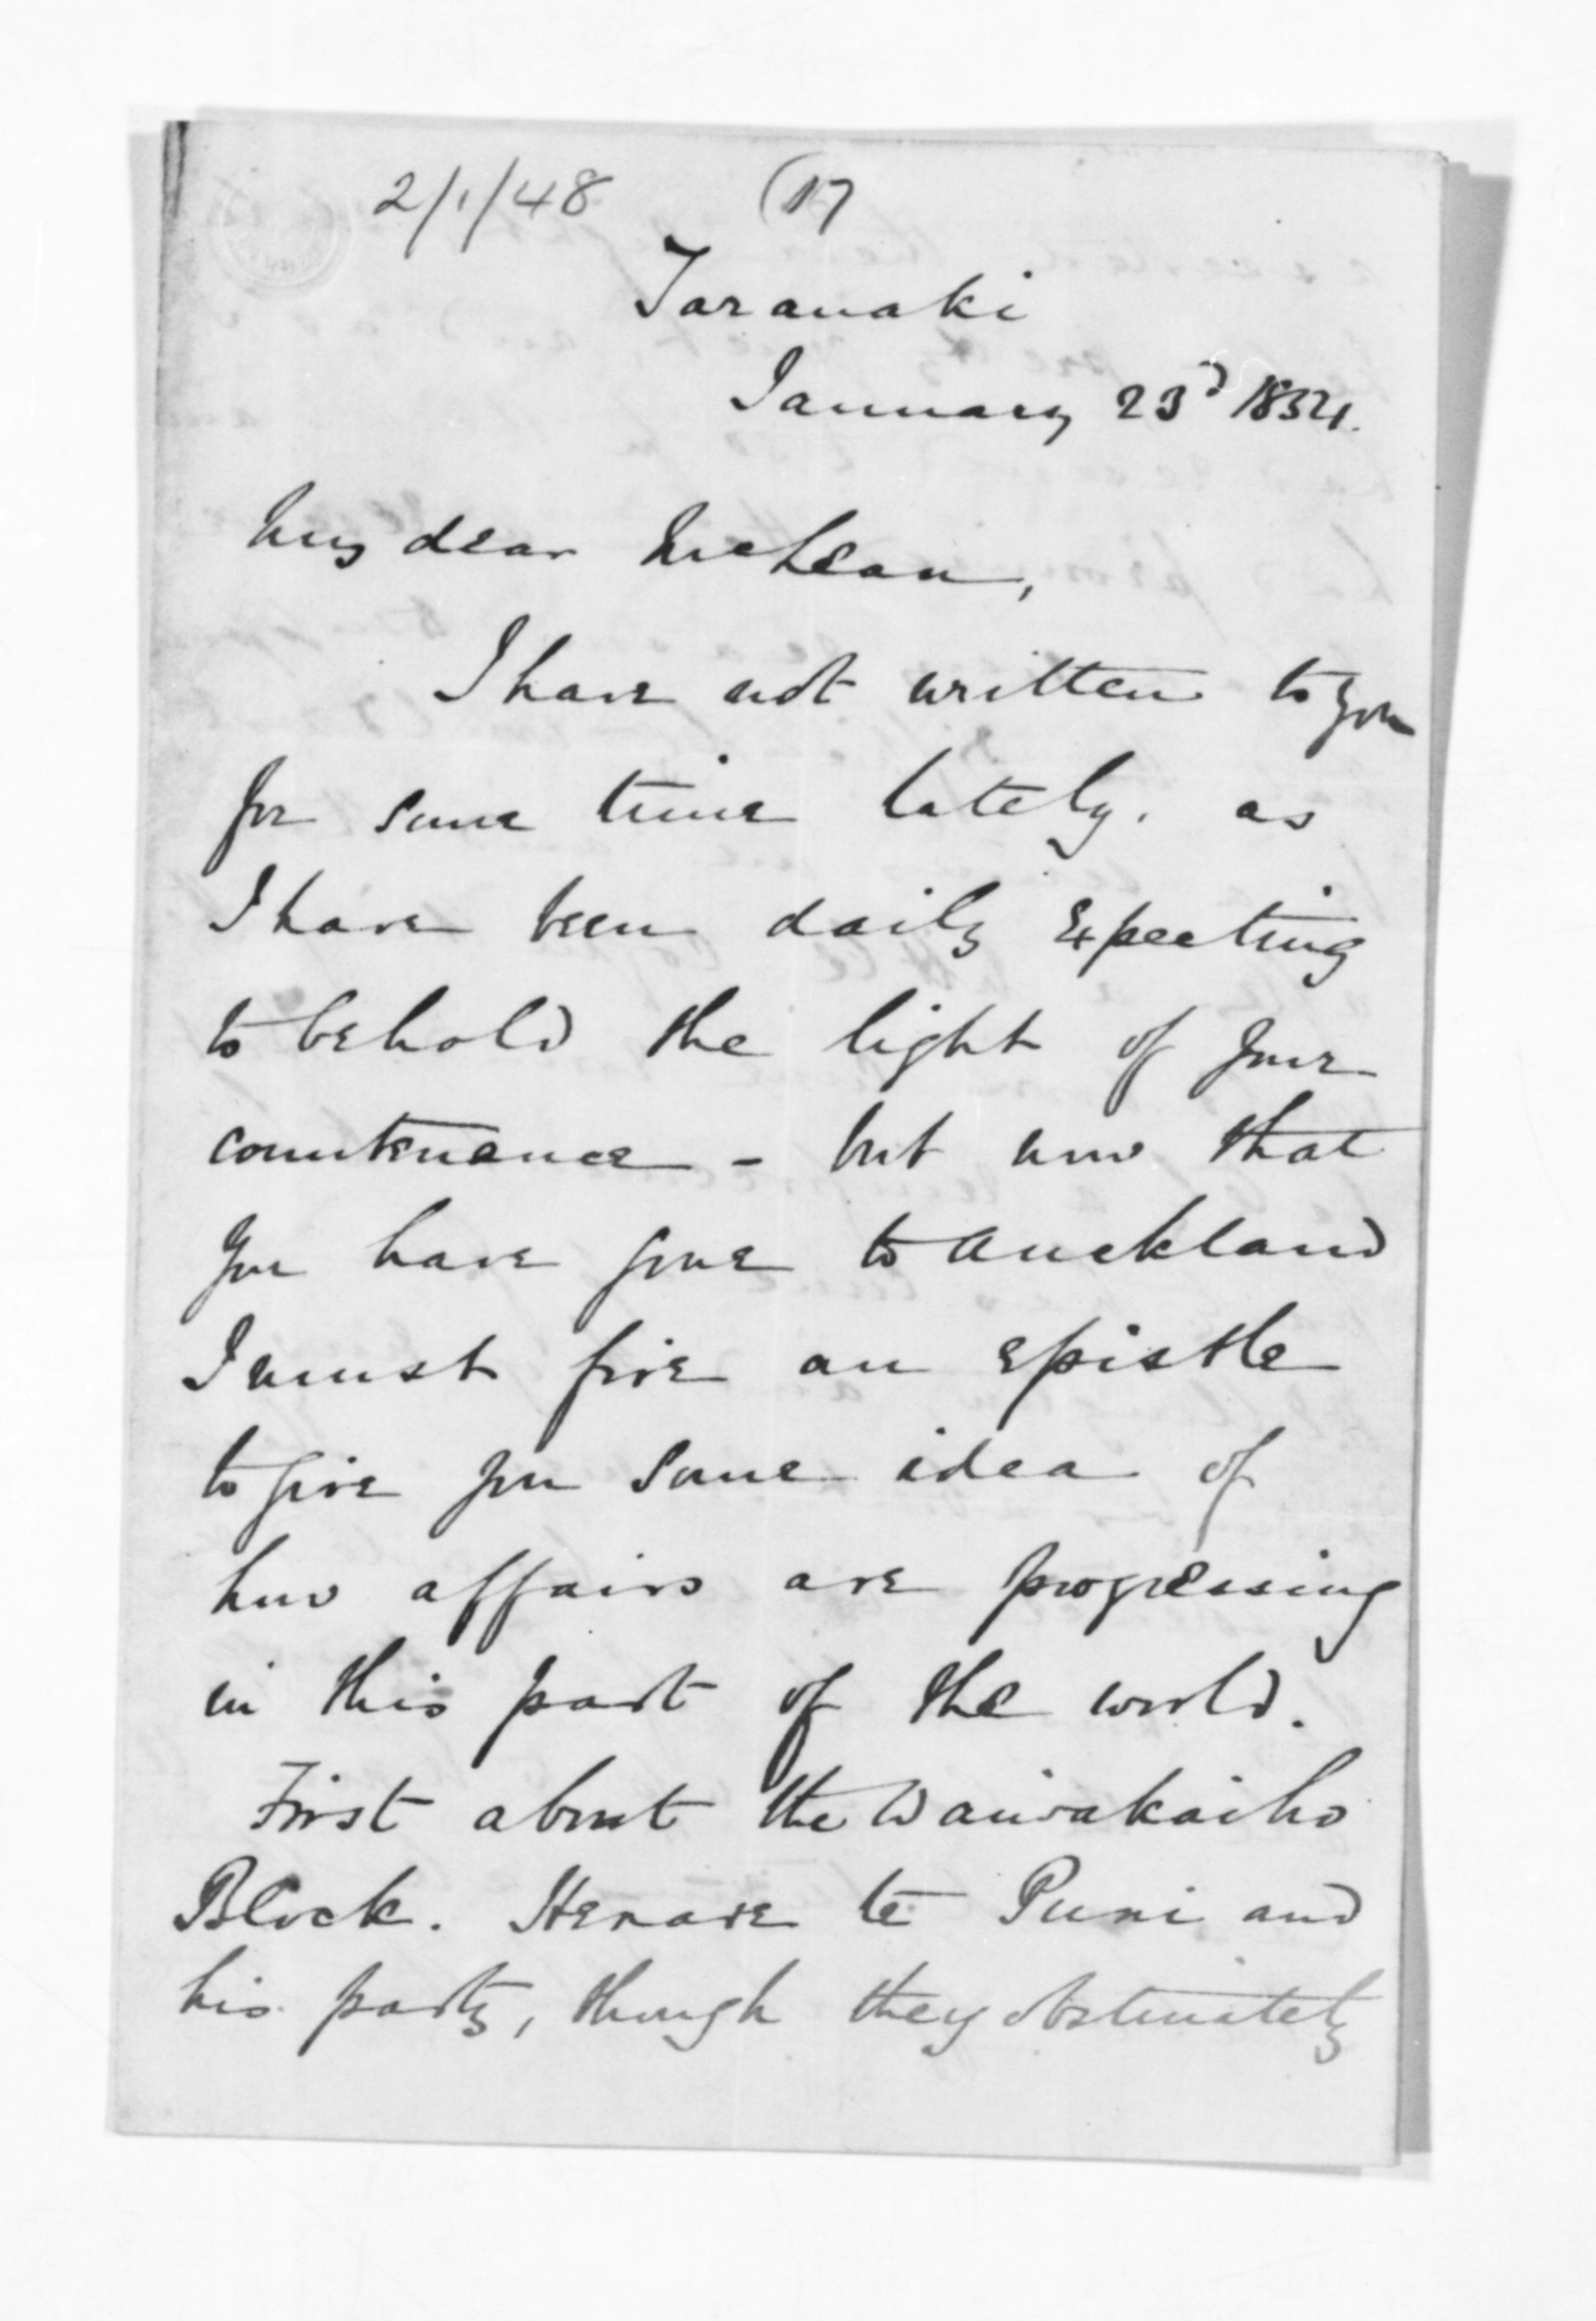 2/1/48 (17
Taranaki
January 23d 1854.
My dear McLean,
I have not written to you
for some time lately. as
I have been daily expecting
to behold the light of your
countenance - but now that
you have gone to Auckland
I must fire an epistle
to give you some idea of
how affairs are progressing
in this part of the world.
First about the Waiwakaiho
Block. Henare te Puni and
his party, though they obstinately